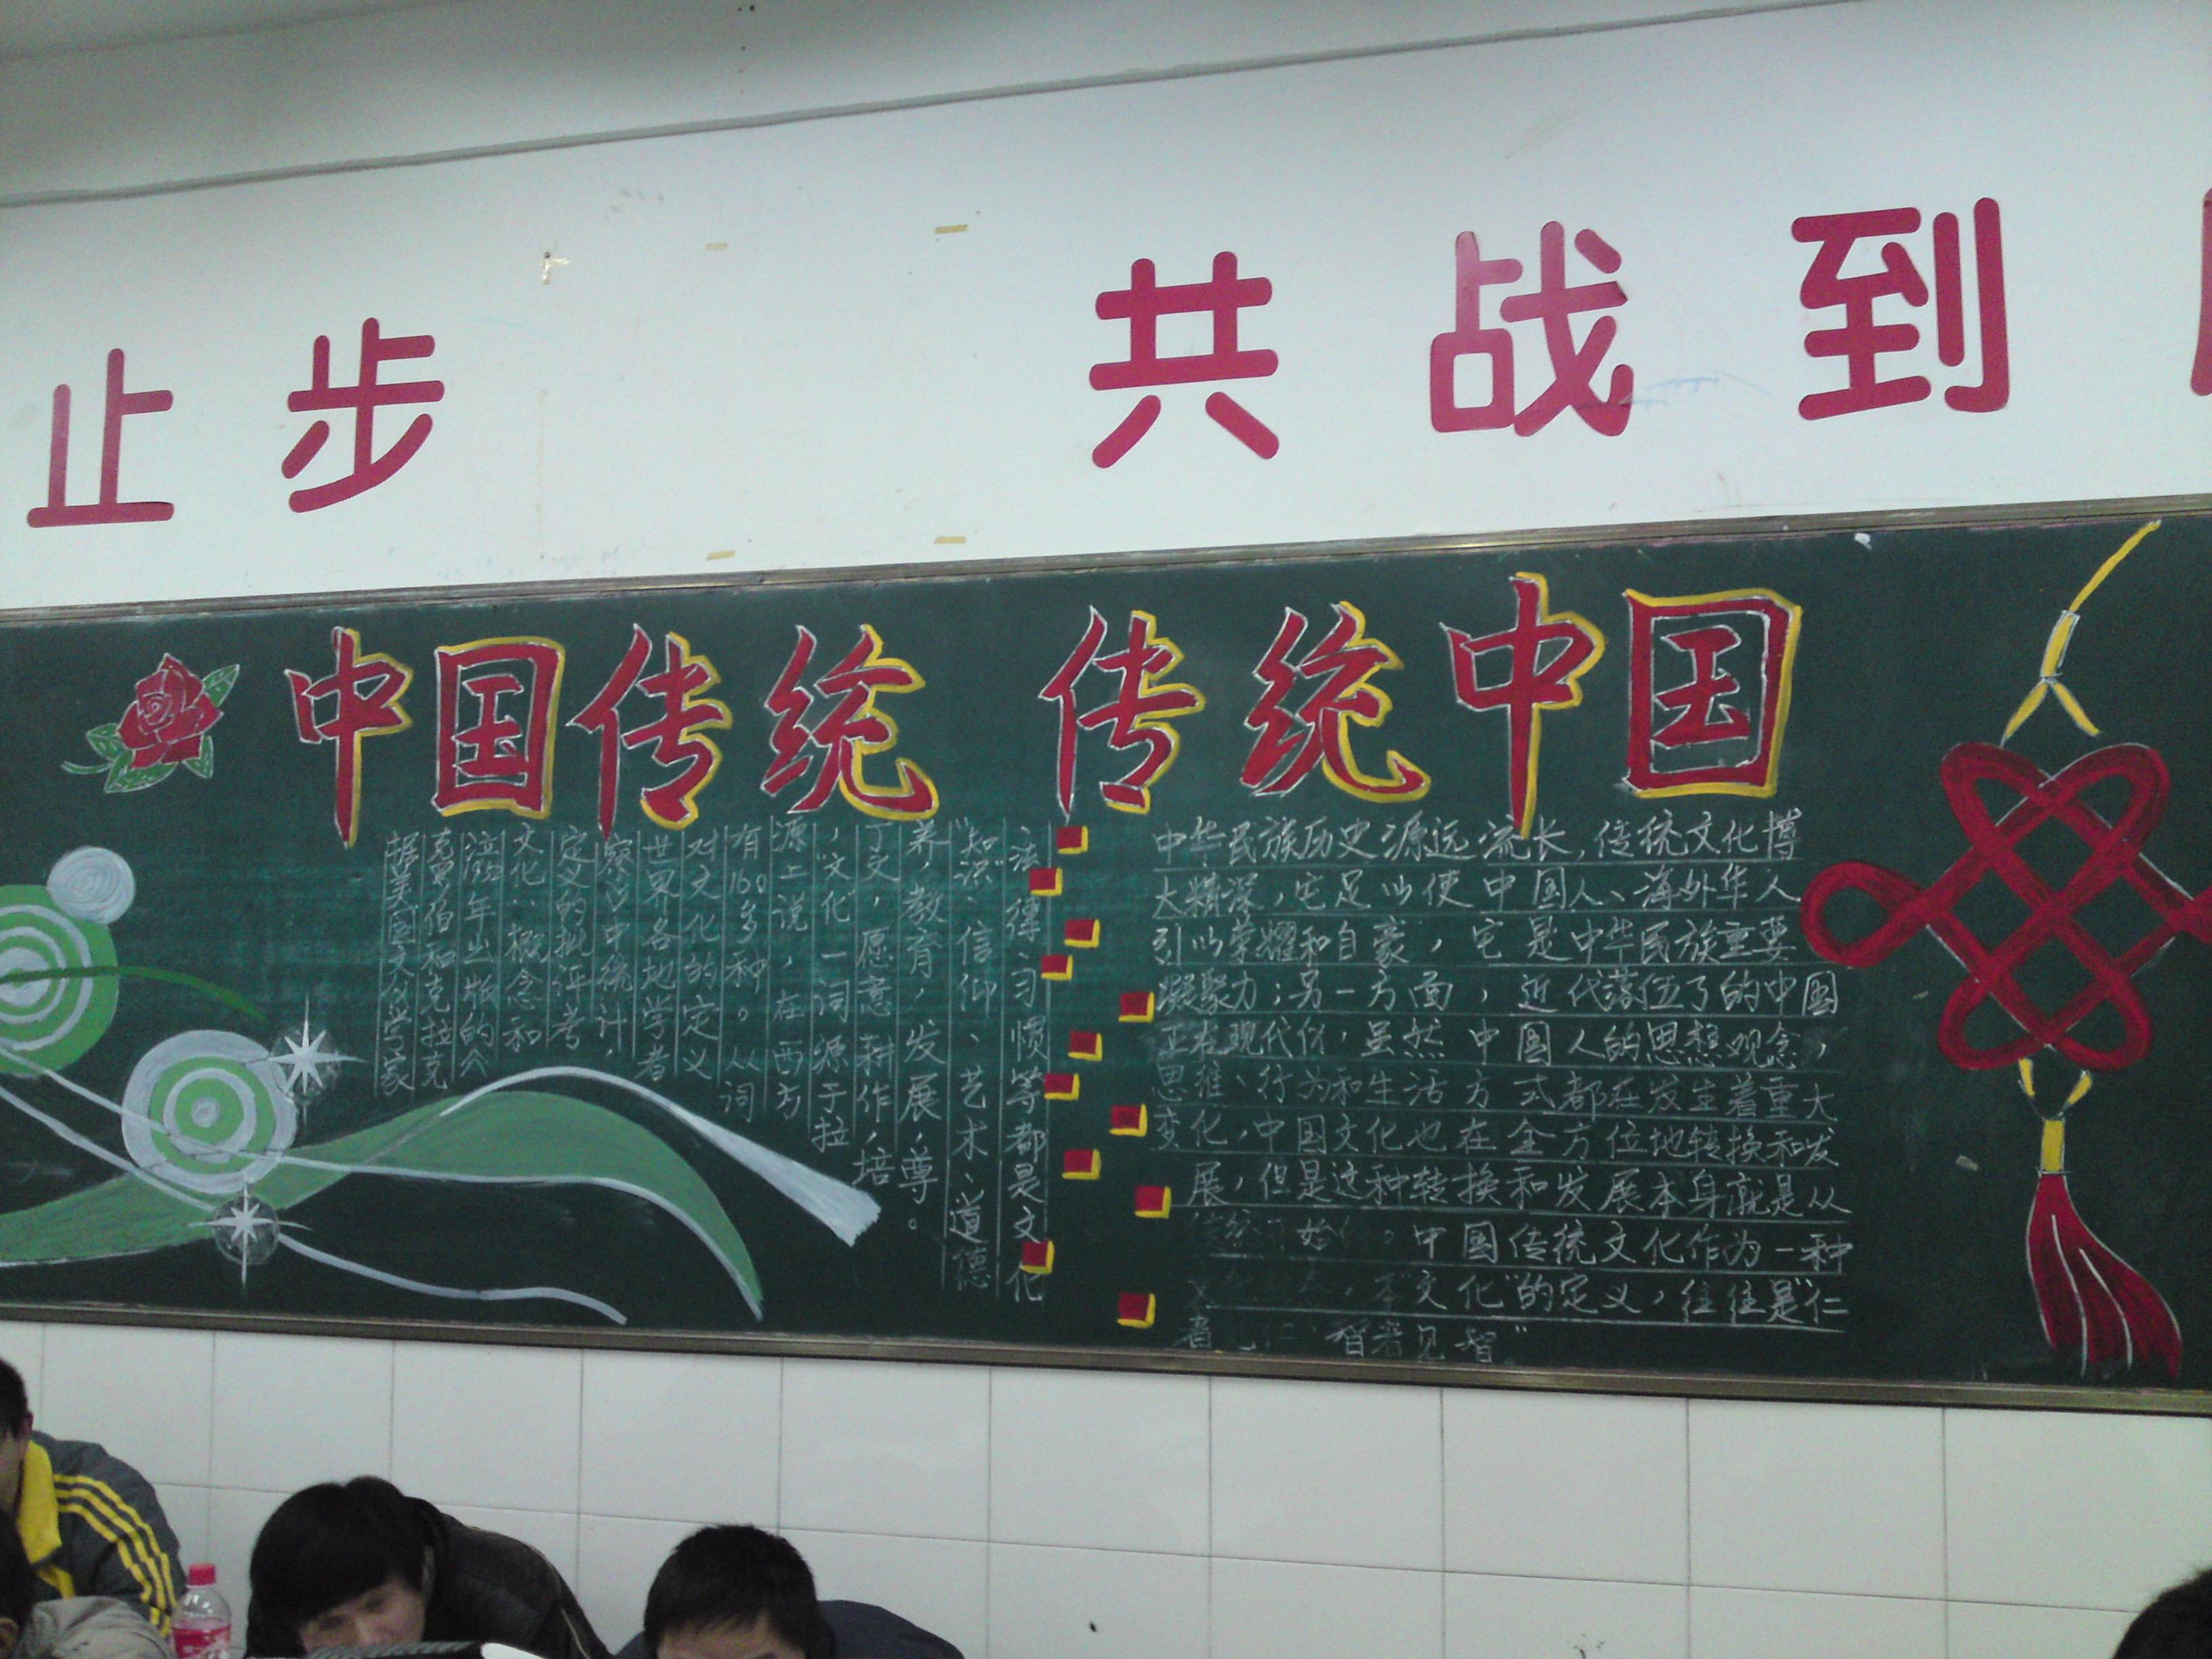 止步 共战到
中国传统 传统中国
据美国文化学家
克罗伯和克拉克
洪1952年出版的《
文化:概念和
定义的批评考
察》中统计,
世界各地学者
对文化的定义
有160多种。从词
源上说,在西方
,"文化"一词源于拉
丁文,愿意耕作、培
养、教育,发展、尊。
"知识、信仰、艺术、道德
法律、习惯等都是文化
中华民族历史源远流长,传统文化博
大精深,它足以使中国人、海外华人
引以荣耀和自豪,它是中华民族重要
凝聚力;另一方面,近代落伍了的中国
正在现代化,虽然中国人的思想观念,
思维、行为和生活方式都在发生着重大
变化,中国文化也在全方位地转换和发
展,但是这种转换和发展本身就是从
传统开始 。中国传统文化作为一种
,本"文化"的定义,往往是"仁
者见仁 智者见智"。